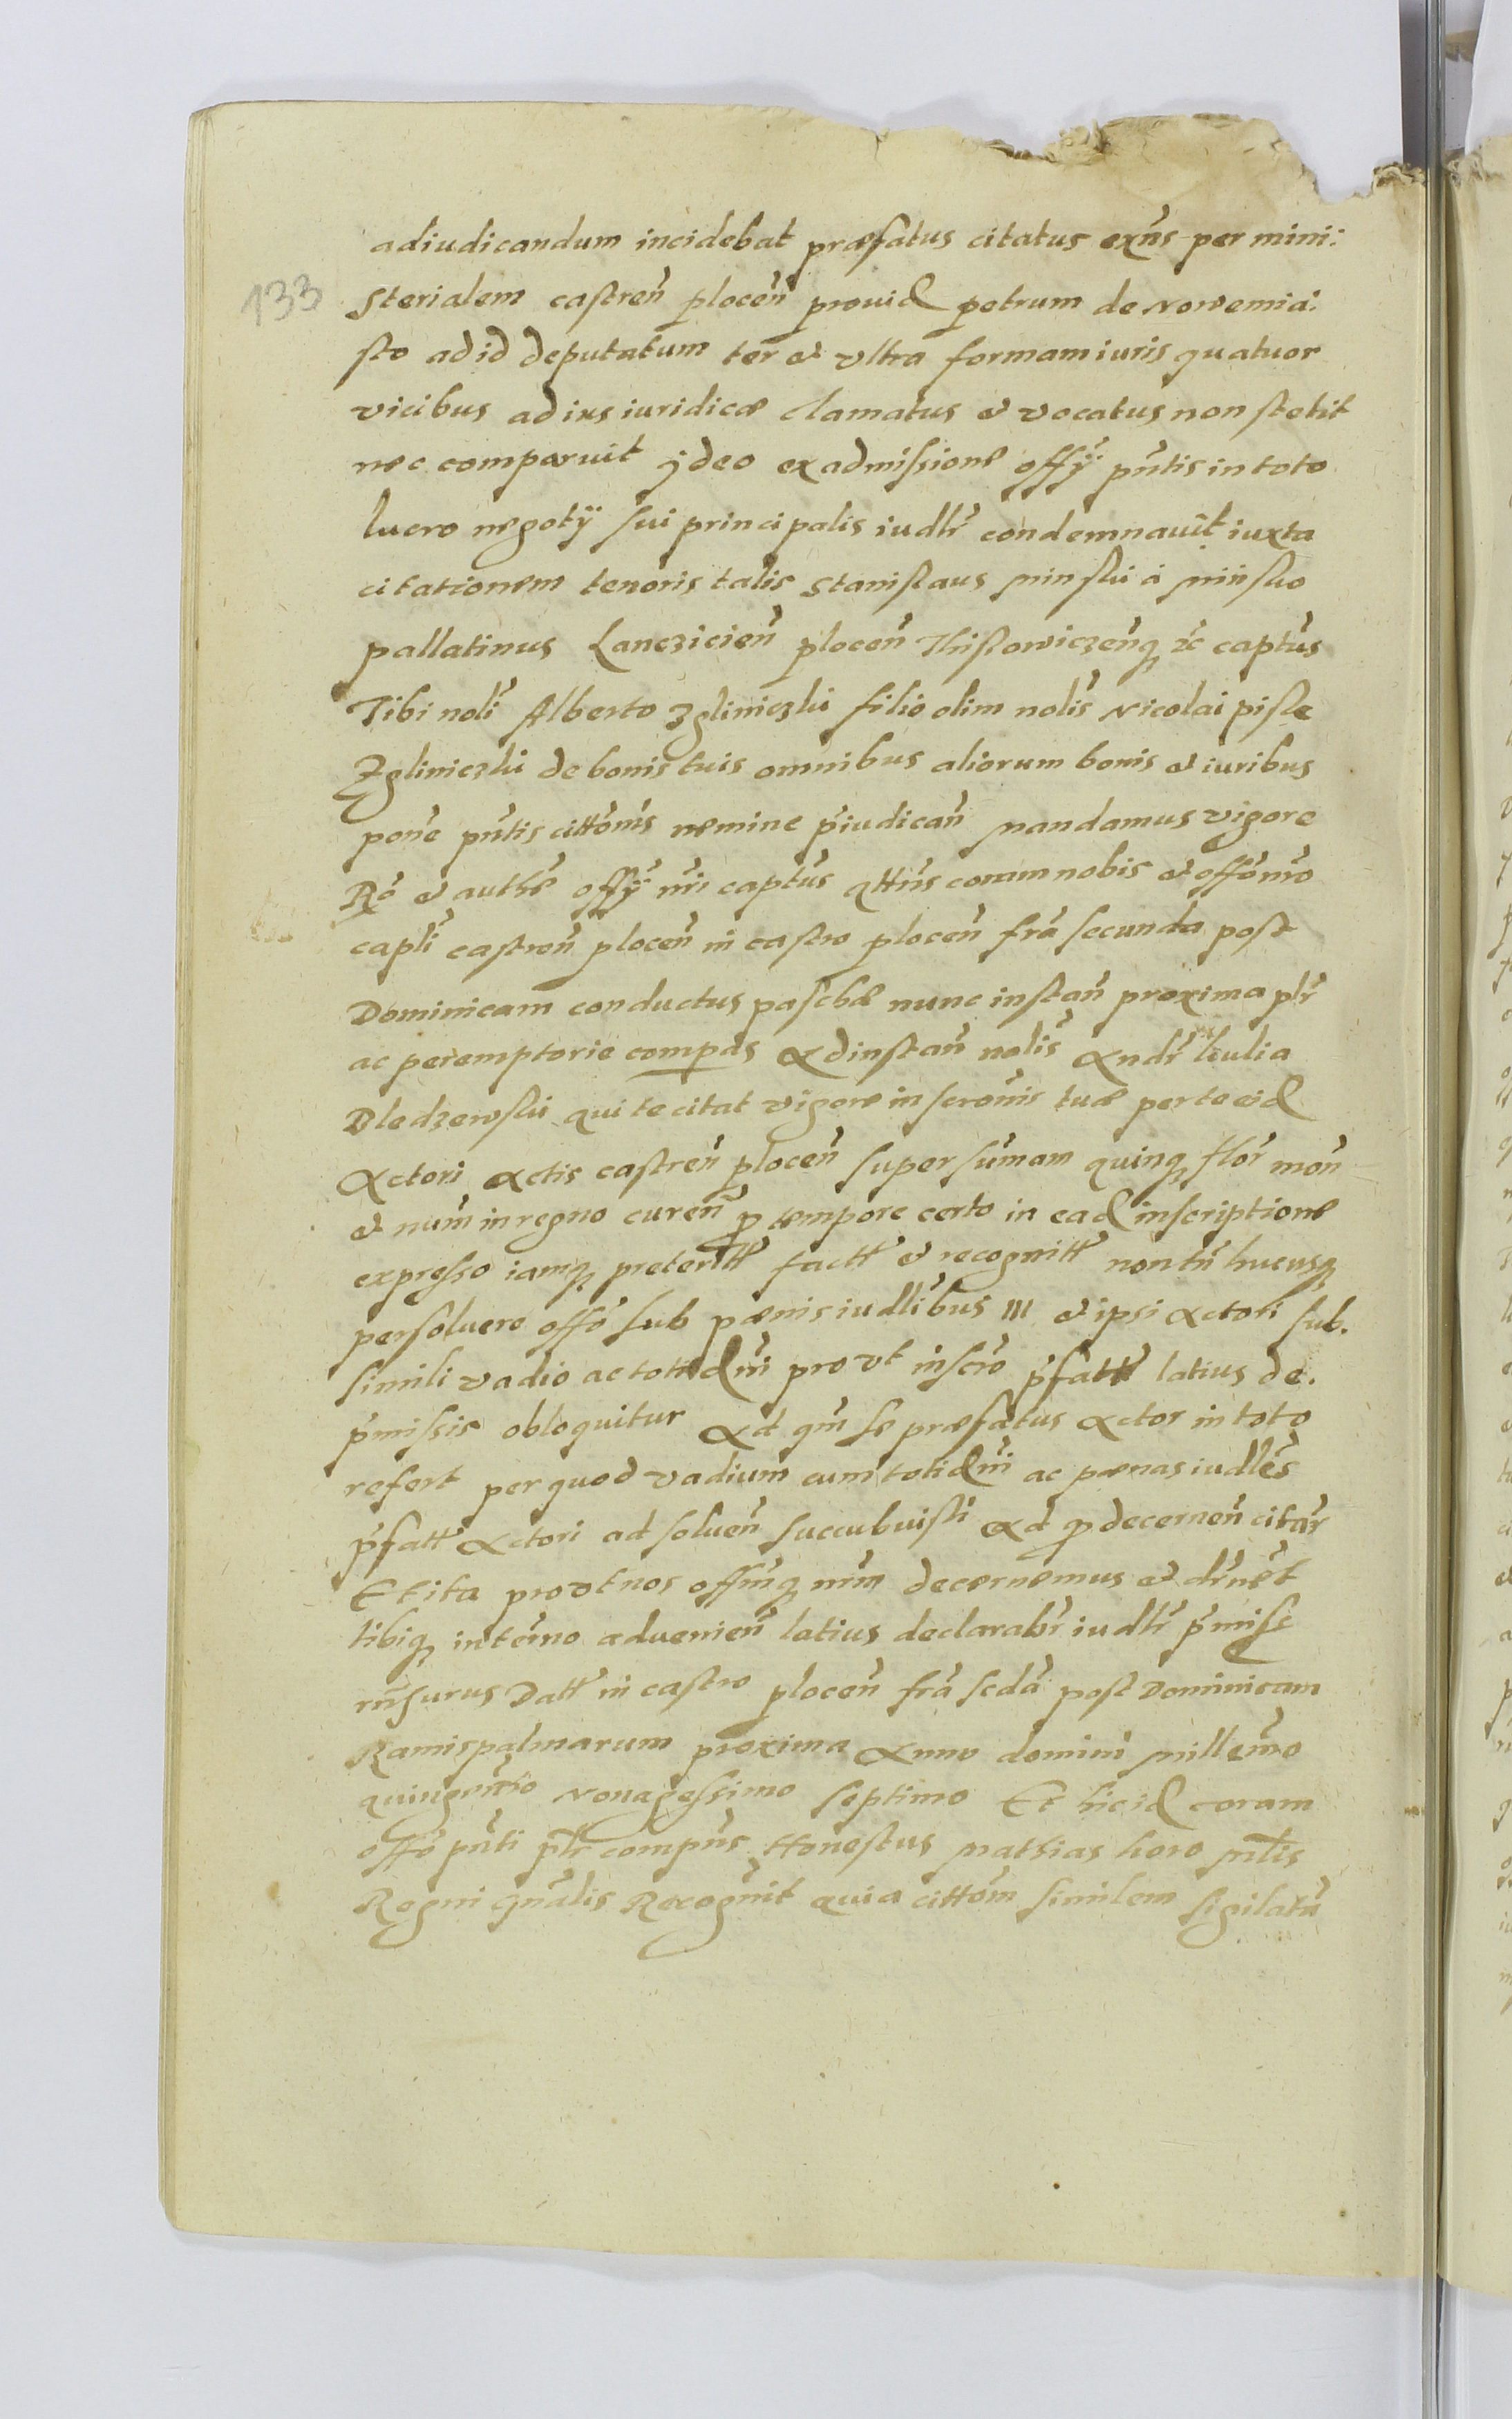 adiudicandum incidebat præfatus citatus exñs per mini:
133
sterialem castreñ ploceñ prouid petrum de nowemia:
sto ad id deputatum ter et vltra formam iuris quatuor
vicibus ad ius iuridicæ clamatus et vocatus non stetit
nec comparuit ÿdeo ex admissione offÿ pñtis in toto
lucro negotÿ sui principalis iudlr condemnauit iuxta
citationem tenoris talis Stanislaus minski á minsko
pallatinus Lanczicieñ ploceñ Thistowiczeñq etc captus
Tibi noli Alberto Zgliniczki filio olim nolis Nicolai piske
Zgliniczki de bonis tuis omnibus aliorum bonis et iuribus
pone pñtis cittõnis nemine p̃iudicañ mandamus vigore
Ro et authe offÿ nri captus qttñs coram nobis et offo nro
capli castreñ ploceñ in castro ploceñ fra secunda post
Dominicam conductus paschæ nunc instañ proxima plr
ac peremptorie compas ad instañ nolis Andr kulia
Dledzewski qui te citat vigore inscronis tuæ per te eid
Actori Actis castreñ ploceñ super sumam quinq flor moñ
et num in regno cureñ p tempore certo in ead inscriptione
expresso iamq preteritt factt et recognitt non tñ hucusq
persoluere offo sub pænis iudlibus III et ipsi Actori sub.
simili vadio ac totidm prout inscro p̃fatt latius de.
p̃missis obloquitur Ad qm se præfatus Actor in toto
refert per quod vadium cum totidm ac pænas iudles
p̃fatt Actori ad solueñ succubuisti Ad p decerneñ citar
Et ita prout nos offmq nrm decernemus et drnet
tibiq in termo adueniẽn latius declarabr iudlr p̃miss
rñsurus Datt in castro ploceñ fra scda post Dominicam
Ramispalmarum proxima Anno domini millemo
quingemo nonagessimo septimo Et hic id coram
offo pñti plr compñs Honestus mathias koro mlis
Regni gñalis Recognit quia cittom similem sigilatã